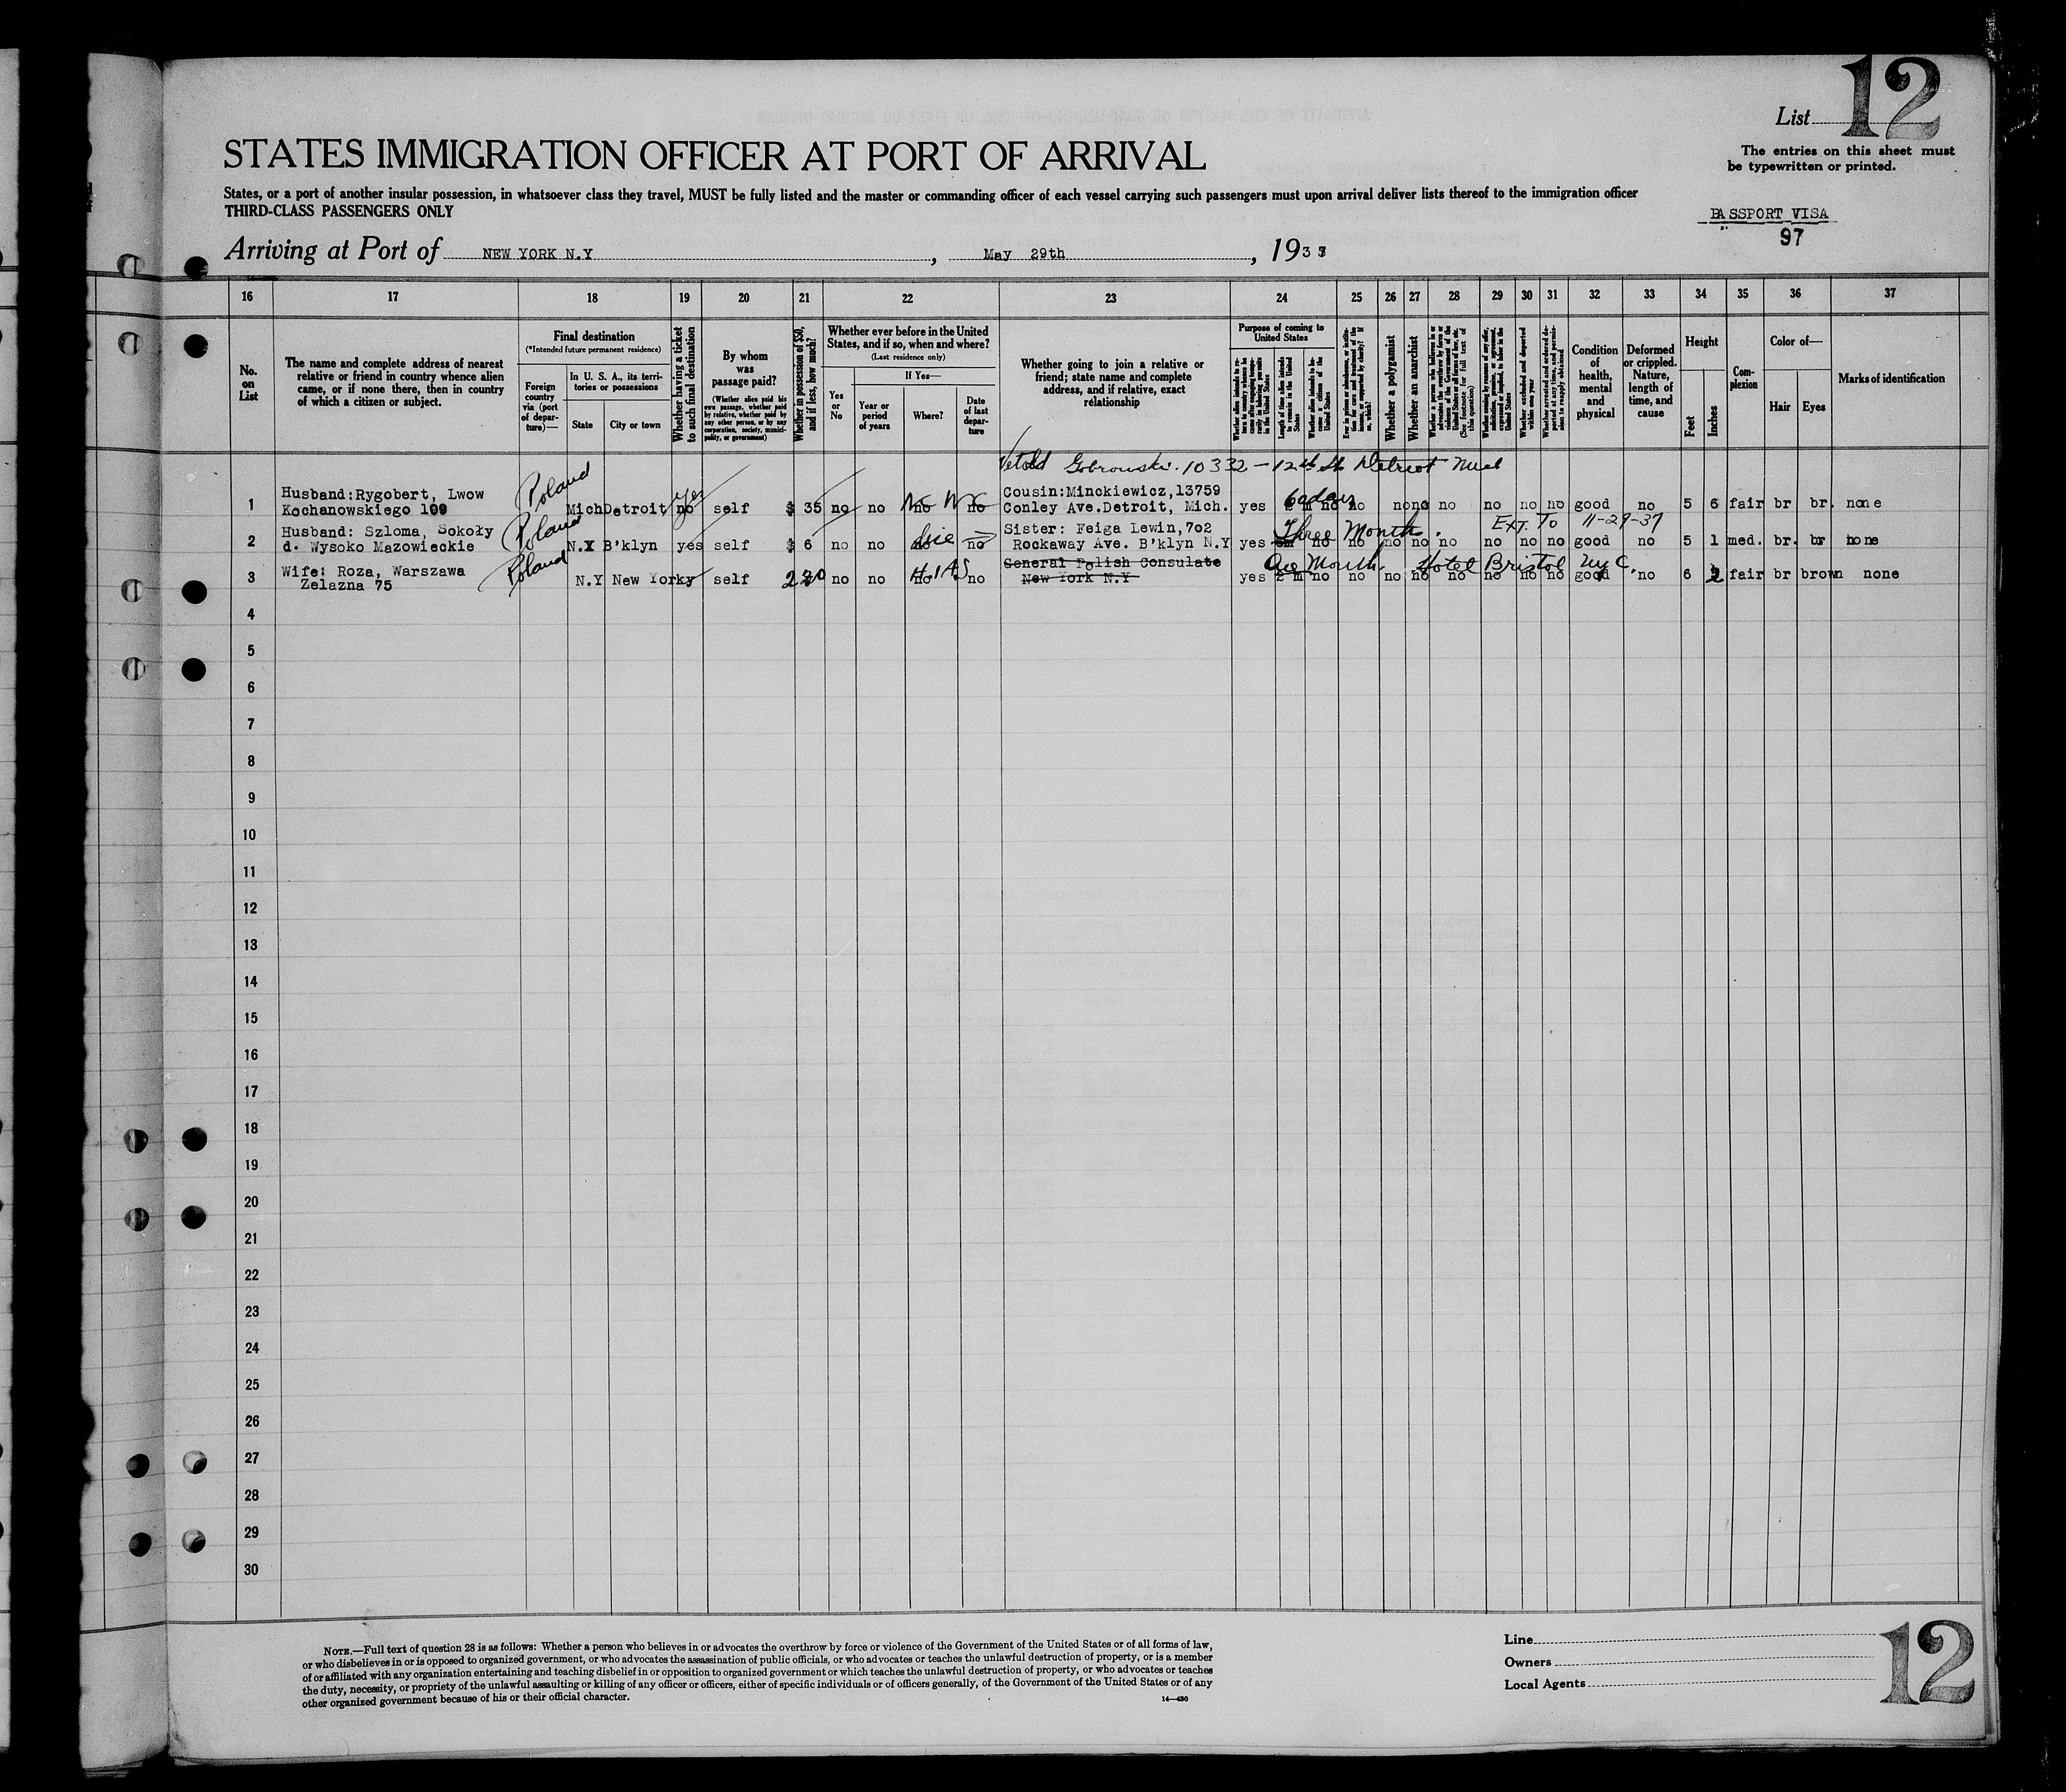 12
List
The entries on this sheet must
be typewritten or printed.
STATES IMMIGRATION OFFICER AT PORT OF ARRIVAL
States, or a port of another insular possession, in whatsoever class they travel, MUST be fully listed and the master or commanding officer of each vessel carrying such passengers must upon arrival deliver lists thereof to the immigration officer
THIRD-CLASS PASSENGERS ONLY
PASSPORT VISA
97
Arriving at Port of NEW YORK N.Y , May 29th , 1937
16 17 18 19 20 21 22 23 24 25 26 27 28 29 30 31 32 33 34 35 36 37
No. on List
The name and complete address of nearest
relative or friend in country whence alien
came, or if none there, then in country
of which a citizen or subject.
Final destination
(*Intended future permanent residence)
Foreign country via (port of departure)—
In U. S. A., its territories or possessions
State
City or town
Whether having a ticket to such final destination
By whom was passage paid?
(Whether alien paid his own passage, whether paid by relative, whether paid by any other person, or by any corporation, society, municipality, or government)
Whether in possession of $50, and if less, how much?
Whether ever before in the United
States, and if so, when and where?
(Last residence only)
Yes or No
If Yes—
Year or period of years
Where?
Date of last departure
Whether going to join a relative or
friend; state name and complete
address, and if relative, exact
relationship
Purpose of coming to United States
Length of time alien intends to remain in the United States
Whether alien intends to become a citizen of the United States
Whether a polygamist
Whether an anarchist
(See footnote for full text of this question)
Whether excluded and deported within one year
Condition of health, mental and physical
Deformed or crippled. Nature, length of time, and cause
Height
Feet
Inches
Complexion
Color of—
Hair
Eyes
Marks of identification
10332 - 12th St Detroit Mich
1 Husband:Rygobert, Lwow
Kochanowskiego 109
Poland Mich Detroit yes no self $ 35 no no no no
Cousin:Minckiewicz,13759
Conley Ave.Detroit, Mich.
yes 60 days no no none no no no no good no 5 6 fair br br. none
2 Husband: Szloma, Sokoły
d. Wysoko Mazowieckie
Poland N.Y B'klyn yes self $ 6 no no no no
Sister: Feiga Lewin,702
Rockaway Ave. B'klyn N.Y
Three Months. EXT. TO 11-29-37
yes no no no no no no no no good no 5 1 med. br. br none
3 Wife: Roza, Warszawa
Zelazna 75
Poland N.Y New York self 220 no no no HIAS no
General Polish Consulate
New York N.Y
One Month. Hotel Bristol NYC.
yes 2 m no no no no no no no no good no 6 2 fair br brown none
4
5
6
7
8
9
10
11
12
13
14
15
16
17
18
19
20
21
22
23
24
25
26
27
28
29
30
NOTE.—Full text of question 28 is as follows: Whether a person who believes in or advocates the overthrow by force or violence of the Government of the United States or of all forms of law,
or who disbelieves in or is opposed to organized government, or who advocates the assassination of public officials, or who advocates or teaches the unlawful destruction of property, or is a member
of or affiliated with any organization entertaining and teaching disbelief in or opposition to organized government or which teaches the unlawful destruction of property, or who advocates or teaches
the duty, necessity, or propriety of the unlawful assaulting or killing of any officer or officers, either of specific individuals or of officers generally, of the Government of the United States or of any
other organized government because of his or their official character.
14—430
Line
Owners
Local Agents
12